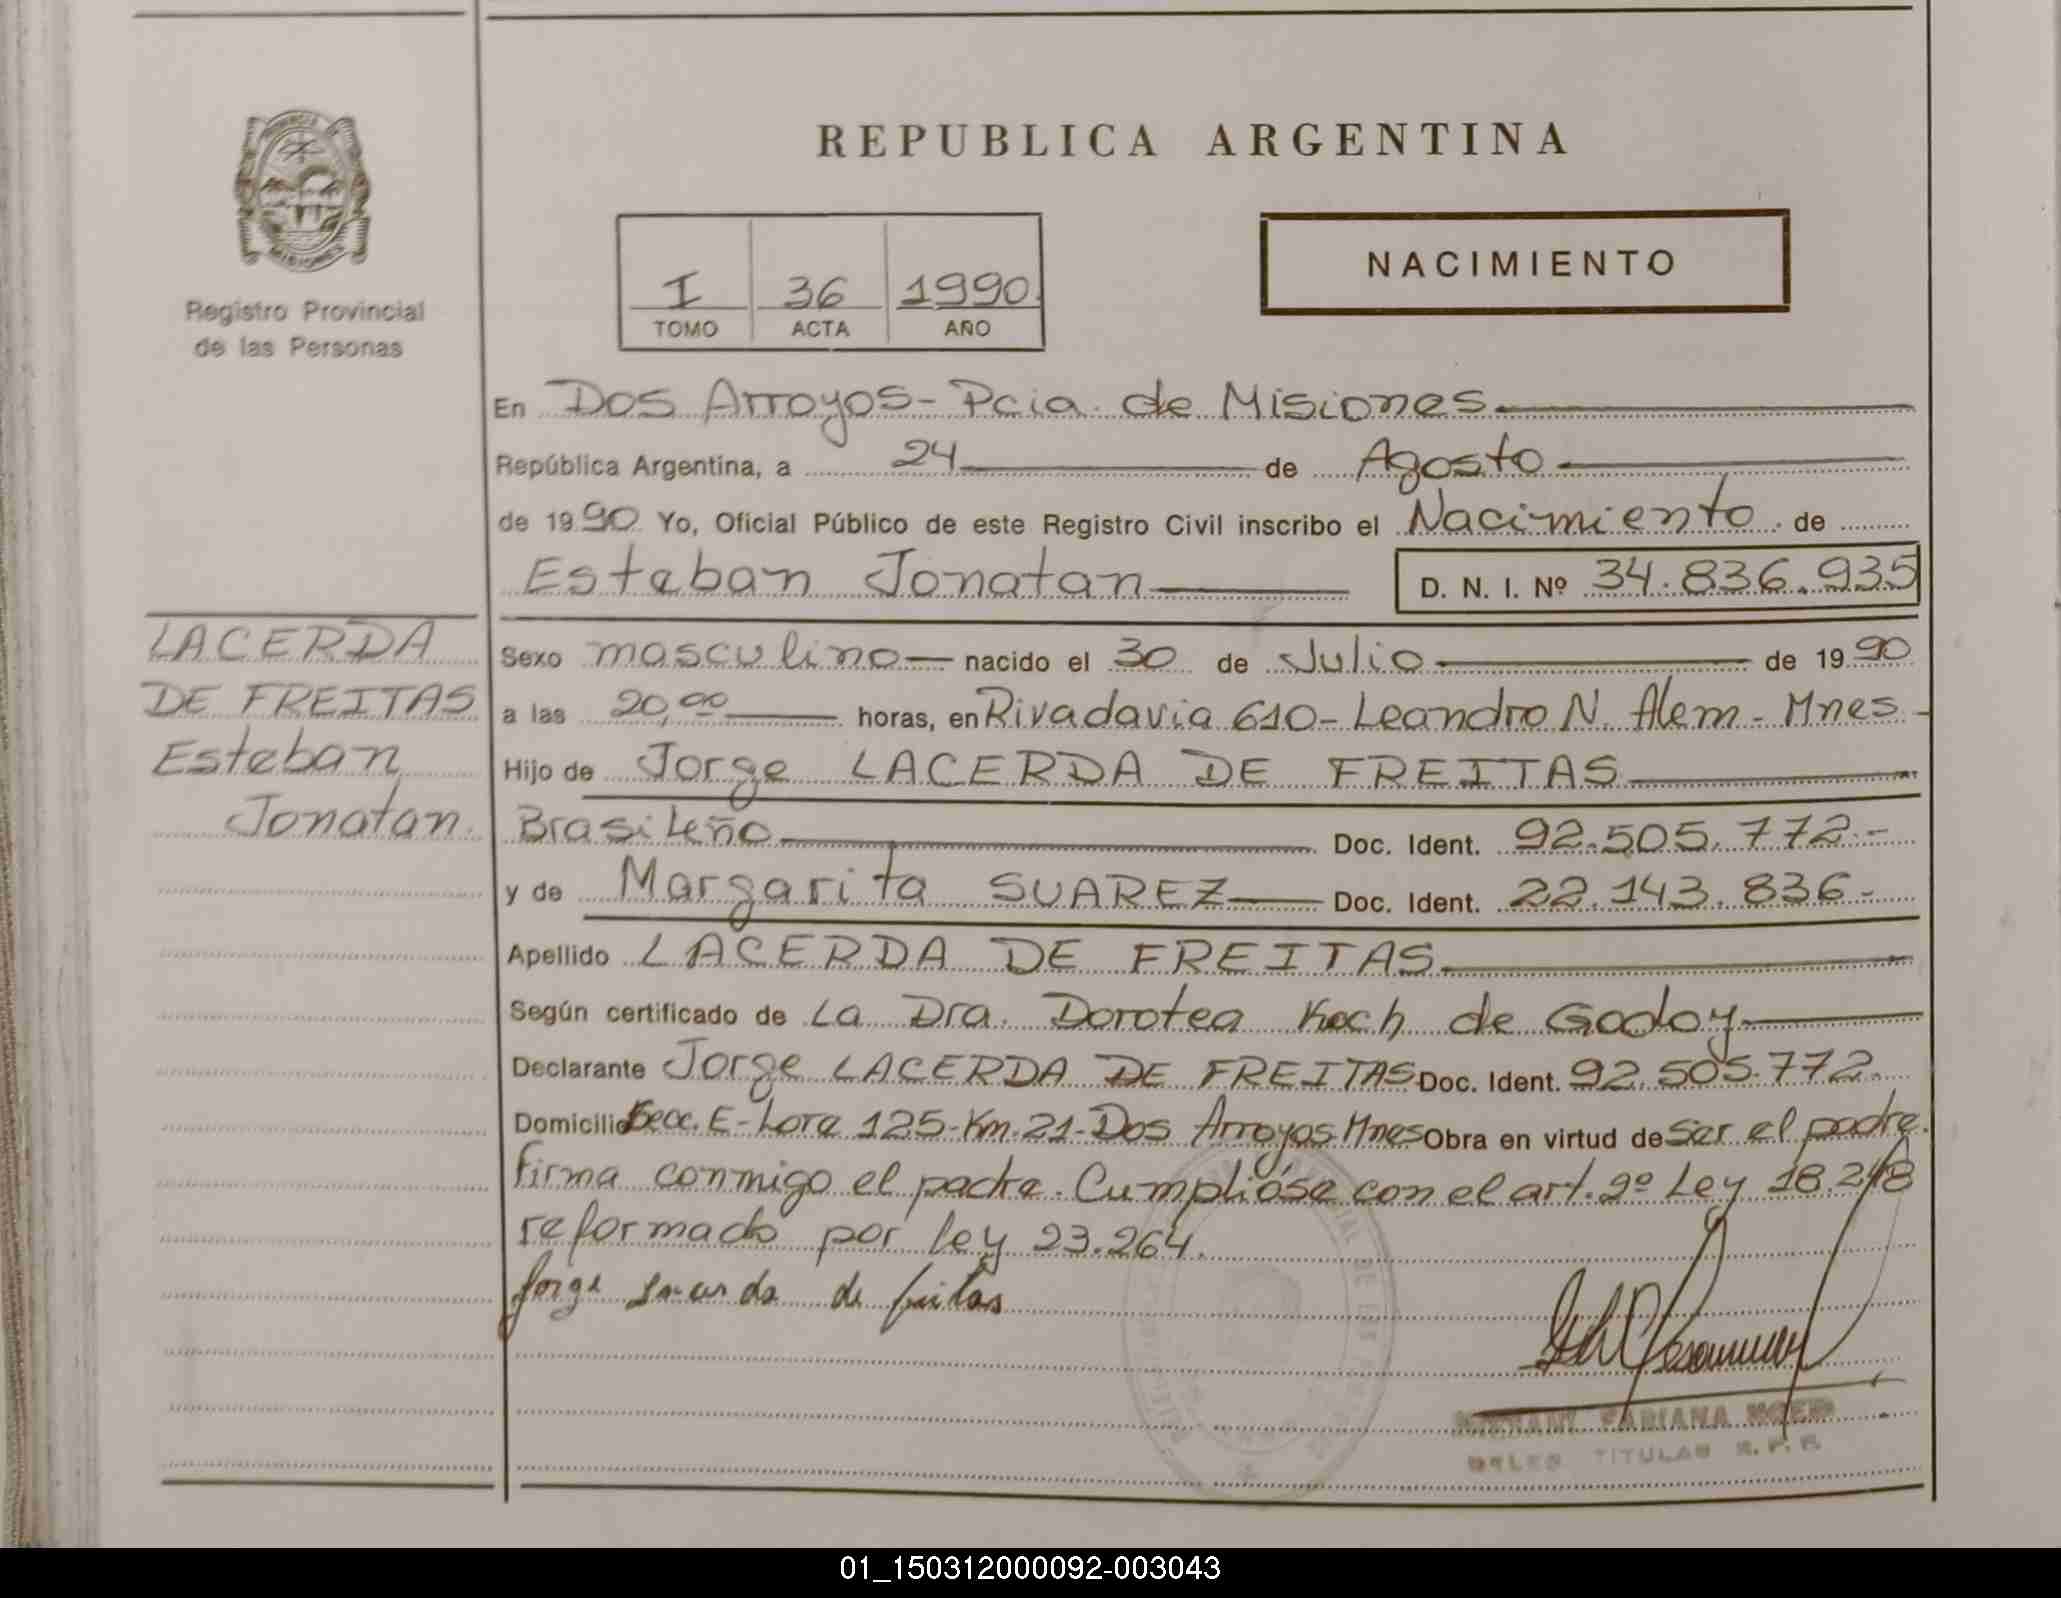 REPUBLICA ARGENTINA
Registro Provincial
de las Personas
I 36 1990
TOMO ACTA AÑO
NACIMIENTO
En Dos Arroyos - Pcia. de Misiones
República Argentina, a 24 de Agosto
de 1990 Yo, Oficial Público de este Registro Civil inscribo el Nacimiento de
Esteban Jonatan D. N. I. Nº 34.836.935
LACERDA
DE FREITAS
Esteban
Jonatan
Sexo masculino nacido el 30 de Julio de 1990
a las 20,00 horas, en Rivadavia 610 - Leandro N. Alem - Mnes -
Hijo de Jorge LACERDA DE FREITAS
Brasileño Doc. Ident. 92.505.772.-
y de Margarita SUAREZ Doc. Ident. 22.143.836.-
Apellido LACERDA DE FREITAS
Según certificado de La Dra. Dorotea Koch de Godoy
Declarante Jorge LACERDA DE FREITAS Doc. Ident. 92.505.772.
Domicilio Secc. E - Lote 125 - Km. 21 - Dos Arroyos Mnes Obra en virtud de ser el padre.
Firma conmigo el padre. Cumplióse con el art. 2º Ley 18.248
reformado por ley 23.264.
Jorge Lacerda de freitas
FABIANA
TITULAR R. P. P.
01_150312000092-003043